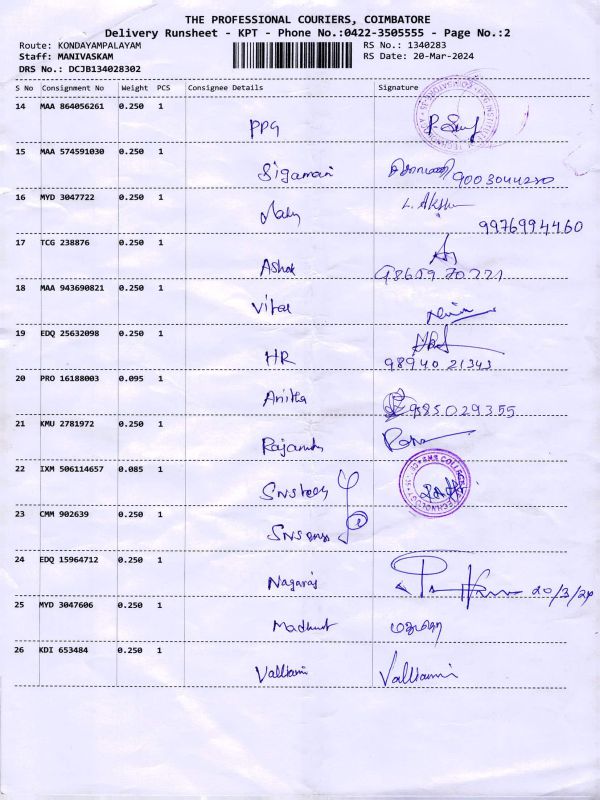 THE PROFESSIONAL COURIERS, COIMBATORE
Delivery Runsheet - KPT - Phone No.:0422-3505555 - Page No.:2
Route: KONDAYAMPALAYAM RS No.: 1340283
Staff: MANIVASKAM RS Date: 20-Mar-2024
DRS No.: DCJB134028302
S No Consignment No Weight PCS Consignee Details Signature
14 MAA 864056261 0.250 1 PPG
15 MAA 574591030 0.250 1 Sigamani 9003044220
16 MYD 3047722 0.250 1 L. Aksh
9976994460
17 TCG 238876 0.250 1 Ashok
18 MAA 943690821 0.250 1 Vital
19 EDQ 25632098 0.250 1 HR
98940 21343
20 PRO 16188003 0.095 1 Anitha 9585029355
21 KMU 2781972 0.250 1
22 IXM 506114657 0.085 1
23 CMM 902639 0.250 1
24 EDQ 15964712 0.250 1 Nagaraj 20/3/24
25 MYD 3047606 0.250 1
26 KDI 653484 0.250 1 Valliami Valliami